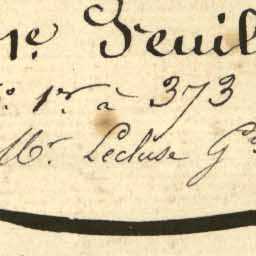 ne. Feuil
o. 1er. à 373
Mr. Lecluse G